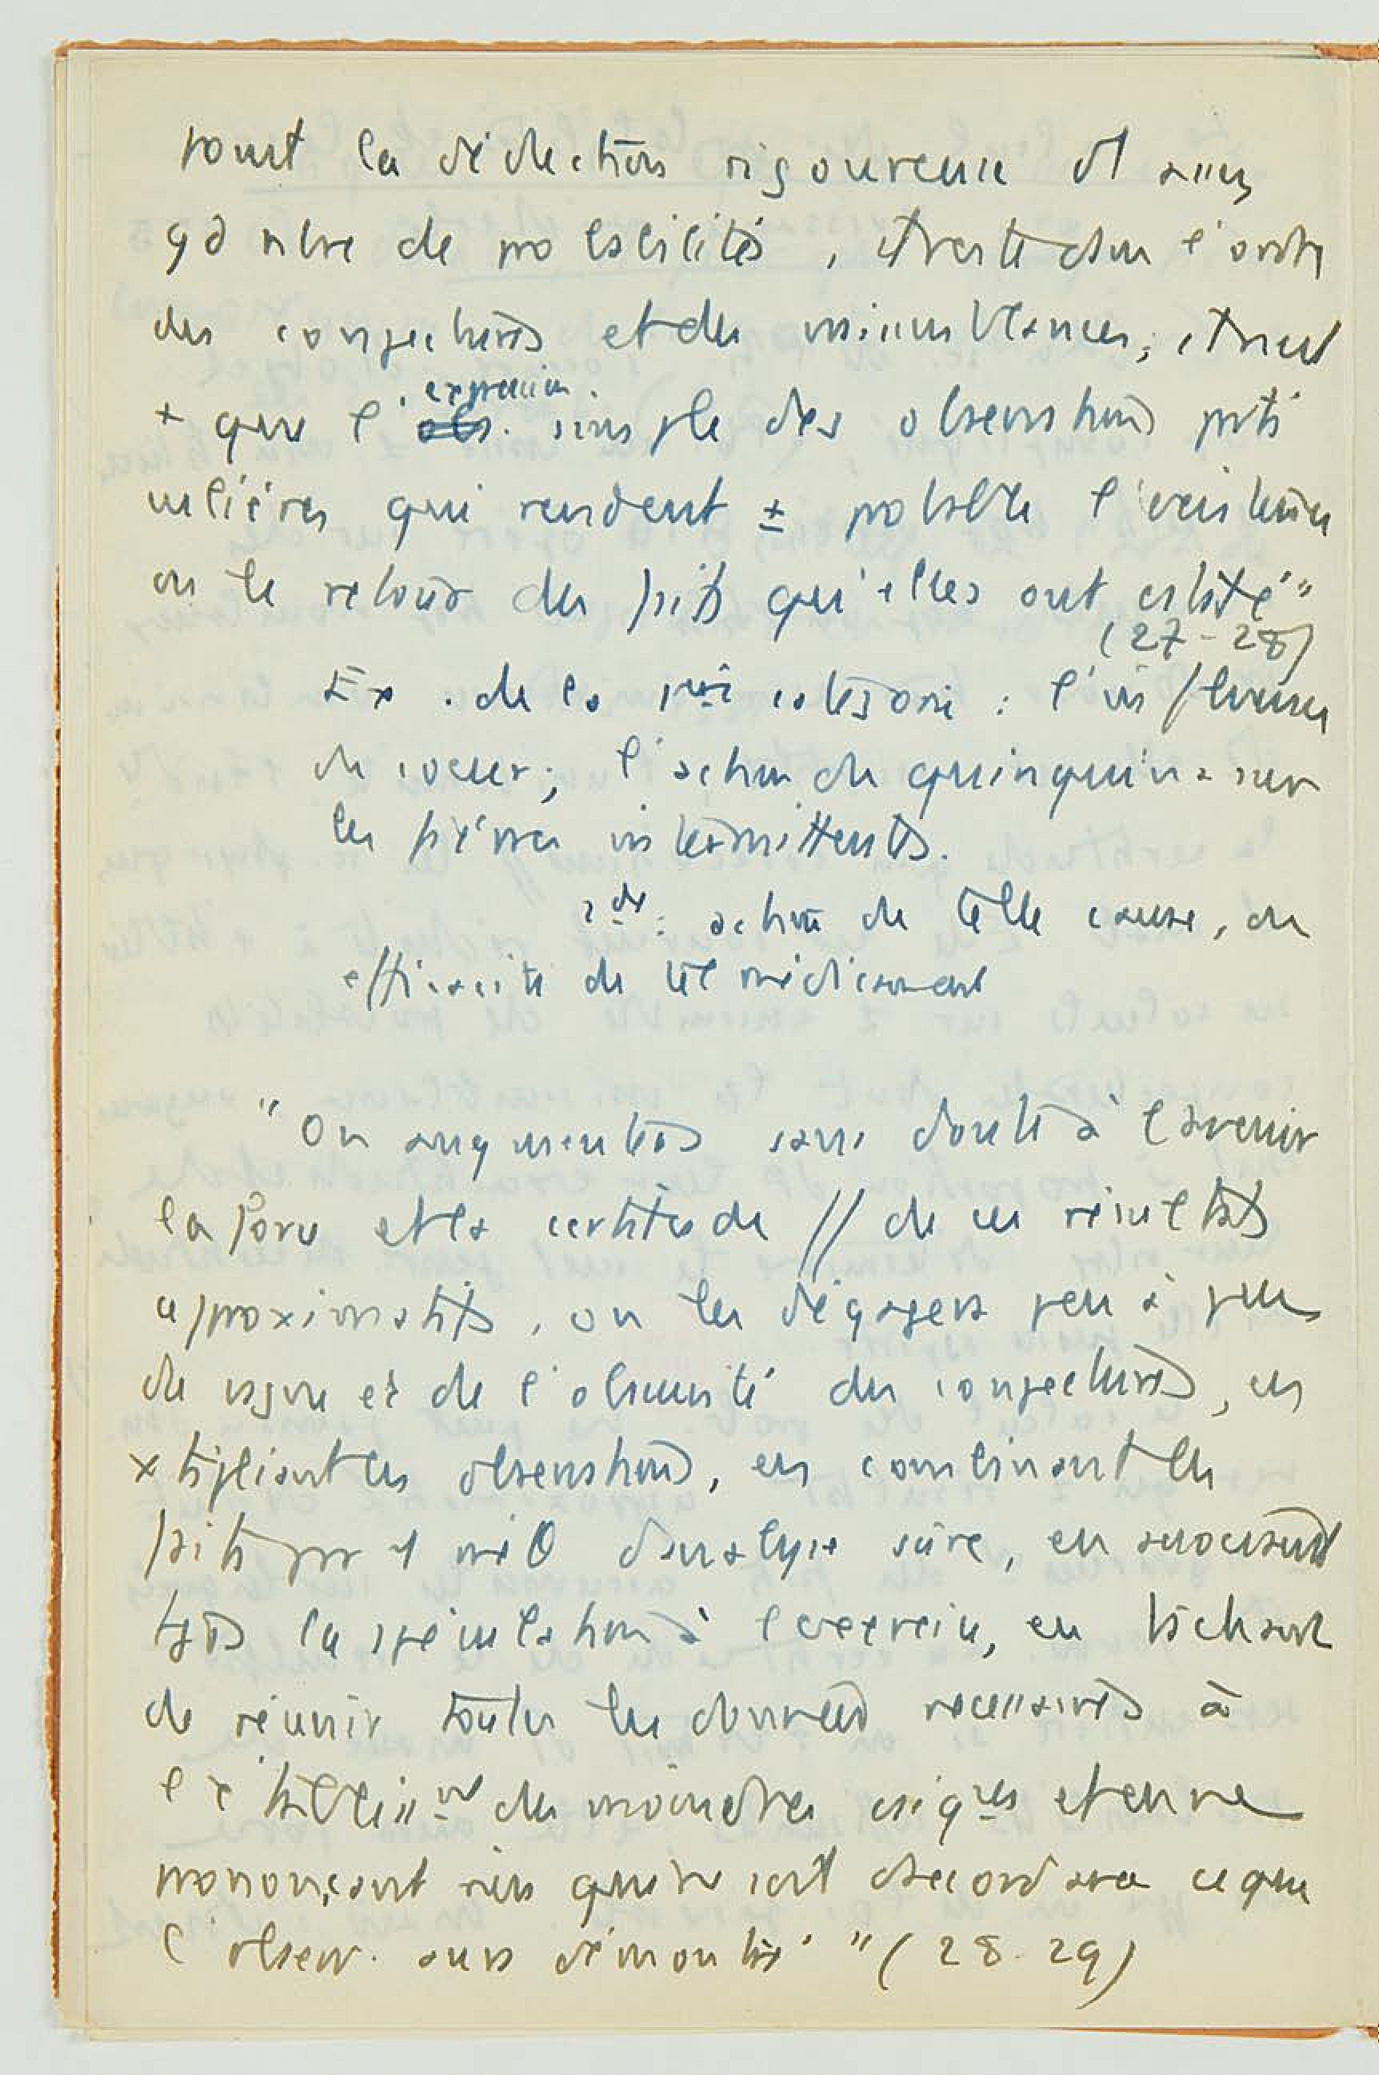 sont la déduction rigoureuse d'1 assez
gd nbre de probabilités, et reste dans l'ordre
des conjectures et des vraisemblances; et n'est
+ que l'expression simple des observations parti
culières qui rendent ± probable l'existence
ou le retour des faits qu'elles ont cstaté"
(27-28)
Ex. de la 1ère catégorie : l'influence
du coeur; l'action du quinquina sur
les fièvres intermittents.
2de: action de telle cause, ou
efficacité de tel médicament
"On augmentera sans doute à l'avenir
la force et la certitude // de ces résultats
aproximatifs, on les dégagera peu à peu
du vague et de l'obscurité des conjectures, en
x tipliant les observations, en combinant les
faits par 1 méθ d'analyse sûre, en associant
tjrs la spéculation à l'exercice, en tâchant
de réunir toutes les données nécessaires à
l'établissnt des moindres et en ne
prononçant rien qui ne soit d'accord avec ce que
l'observ. aura démontré." (28-29)